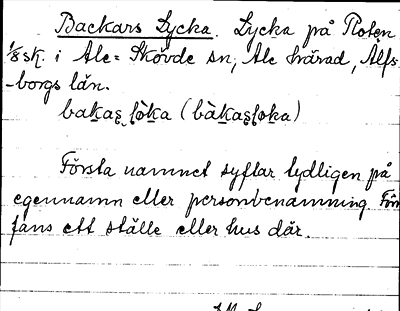 Backars Lycka. Lycka på Roten
1/8 sk. i Ale-Skövde sn, Ale härad, Älfs-
-borgs län.
bakas löka (bàkasloka)
Första namnet syftar tydligen på
egennamn eller personbenämning. Förr
fans ett ställe eller hus där.